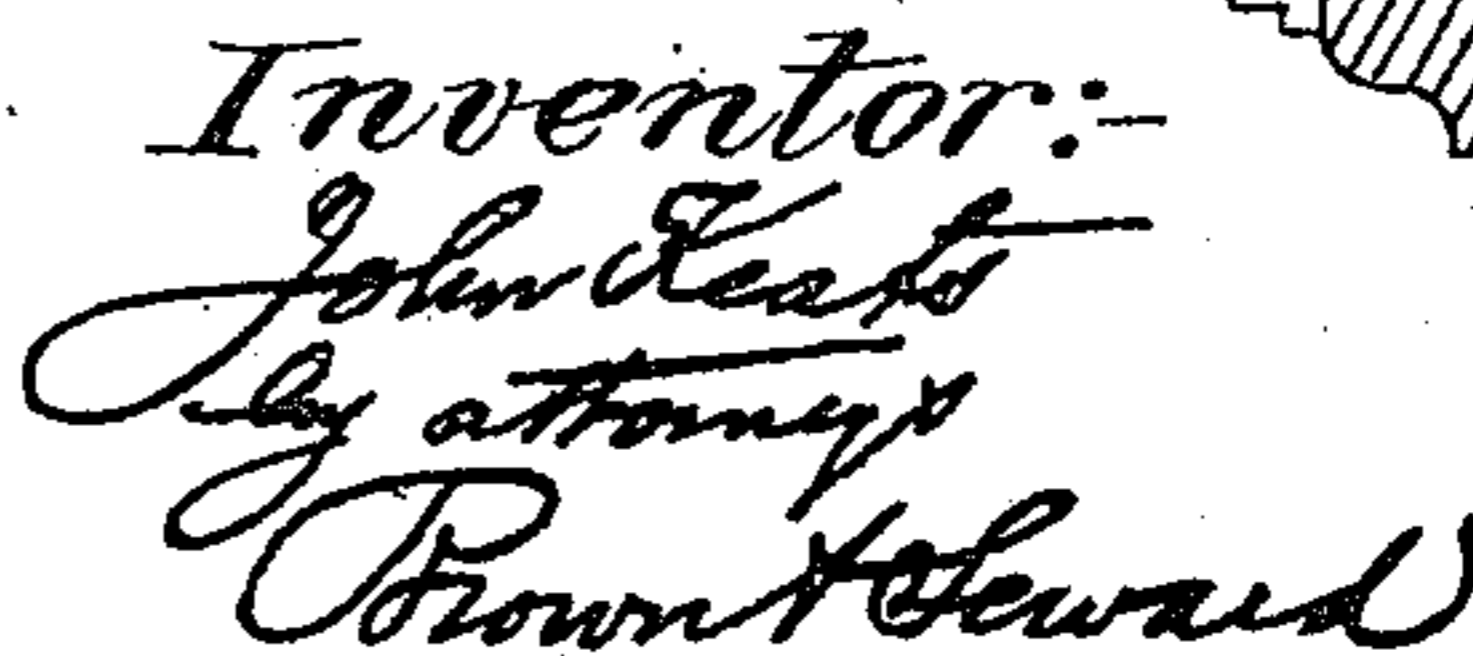 Inventor:-
John Keats
by attorneys
Brown & Seward